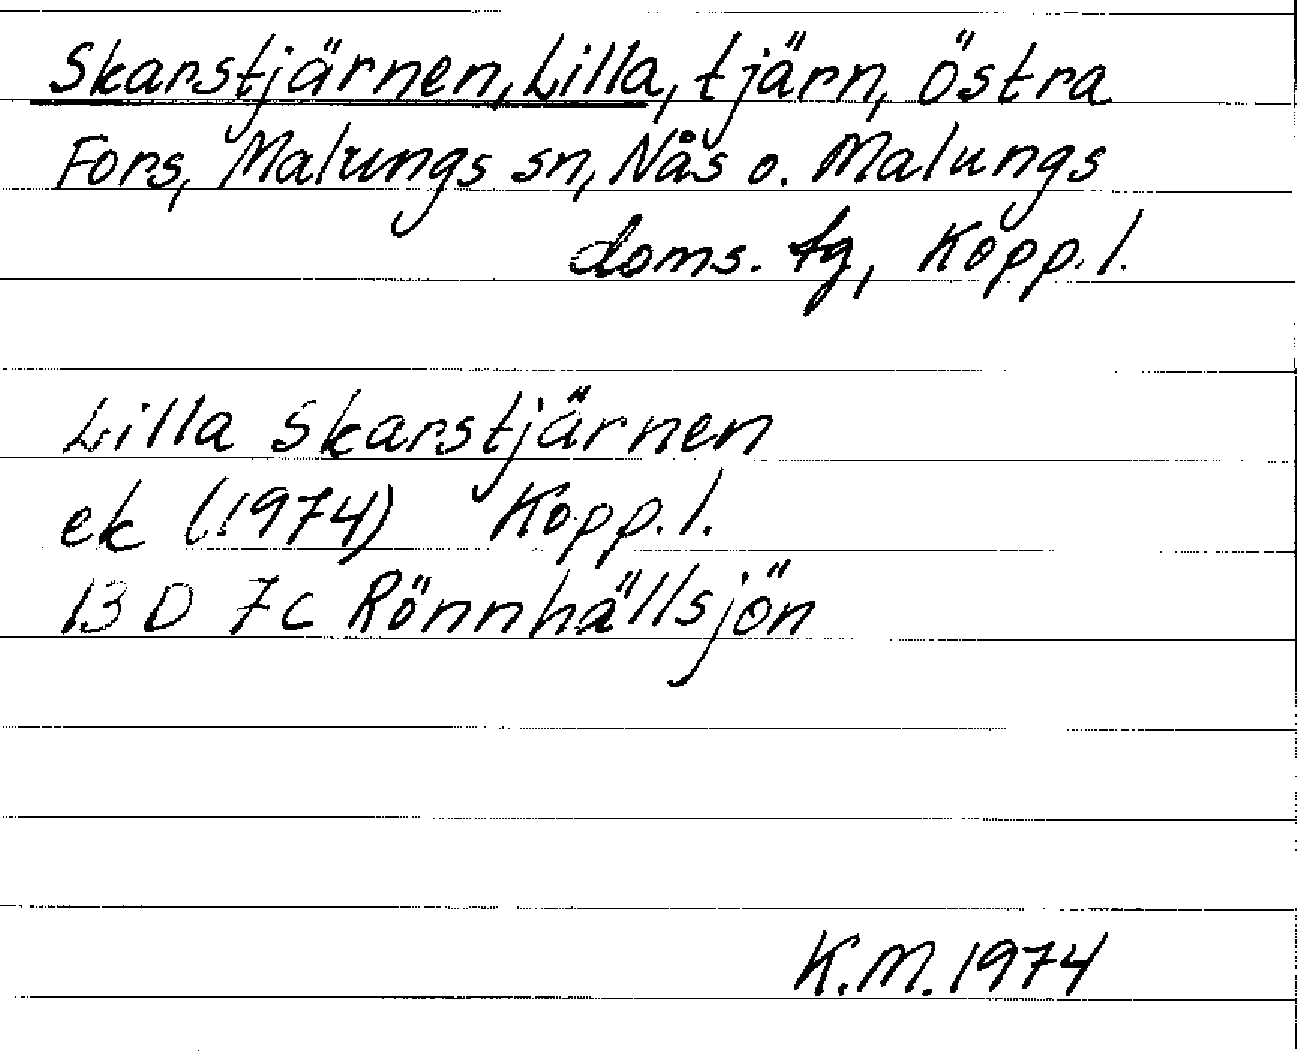 Skarstjärnen, Lilla, tjärn, Östra
Fors, Malungs sn, Nås o. Malungs
doms. tg, Kopp. l.
Lilla Skarstjärnen
ek (1974) Kopp. l.
13 D 7c Rönnhällsjön
K.M. 1974